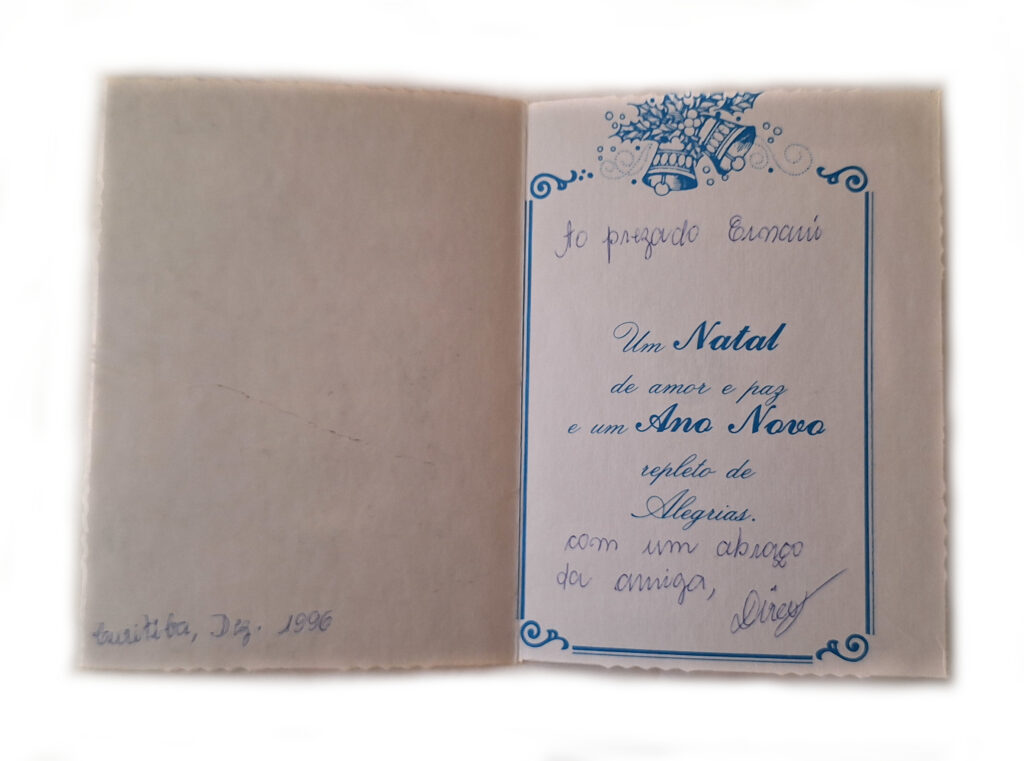 Curitiba, Dez. 1996
Ao prezado Ernani
Um Natal
de amor e paz
e um Ano Novo
repleto de
Alegrias.
com um abraço
da amiga,
Dircy